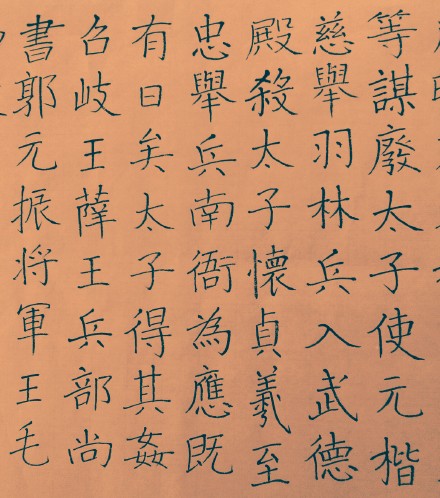 等謀廢太子使元楷
慈舉羽林兵入武德
殿殺太子懷貞羲至
忠舉兵南衙為應既
有日矣太子得其姦
召岐王薛王兵部尚
書郭元振将軍王毛